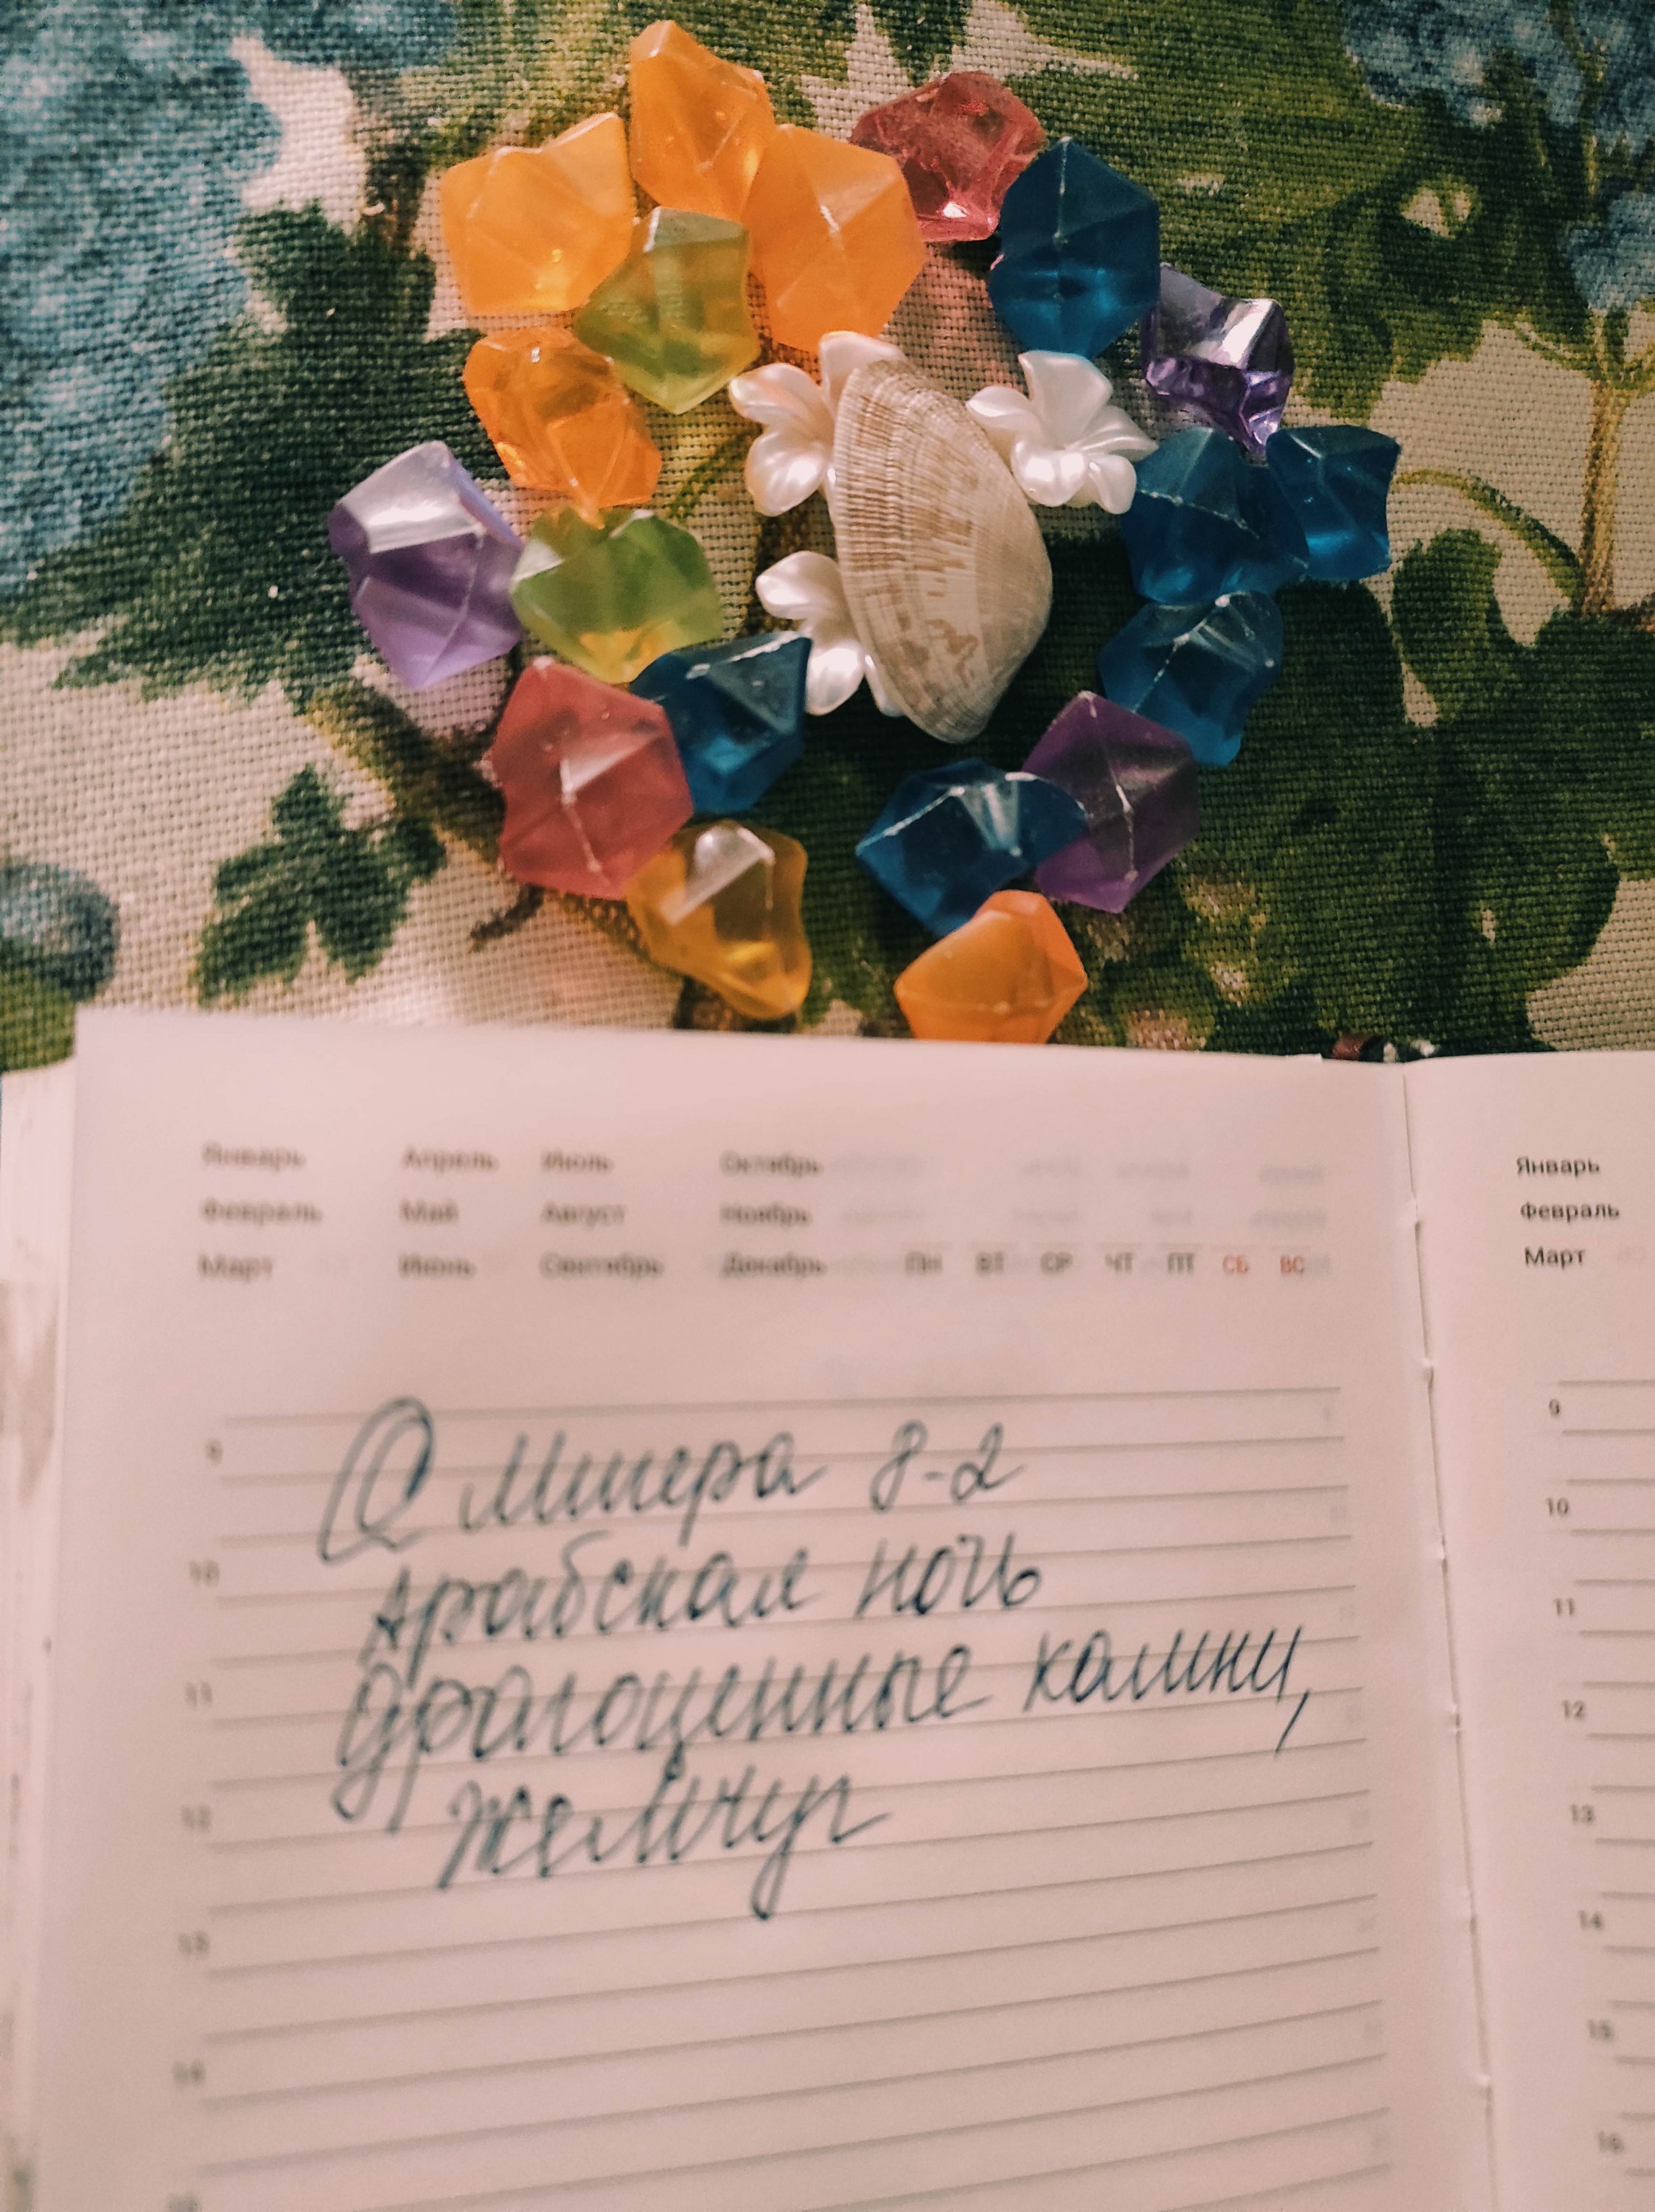 Январь Апрель Июль Октябрь
Февраль Май Август Ноябрь
Март Июнь Сентябрь Декабрь ПН ВТ СР ЧТ ПТ СБ ВС
Мишера 8-2
Арабская ночь
Драгоценные камни,
жемчуг
9
10
11
12
13
14
Январь
Февраль
Март
9
10
11
12
13
14
15
16